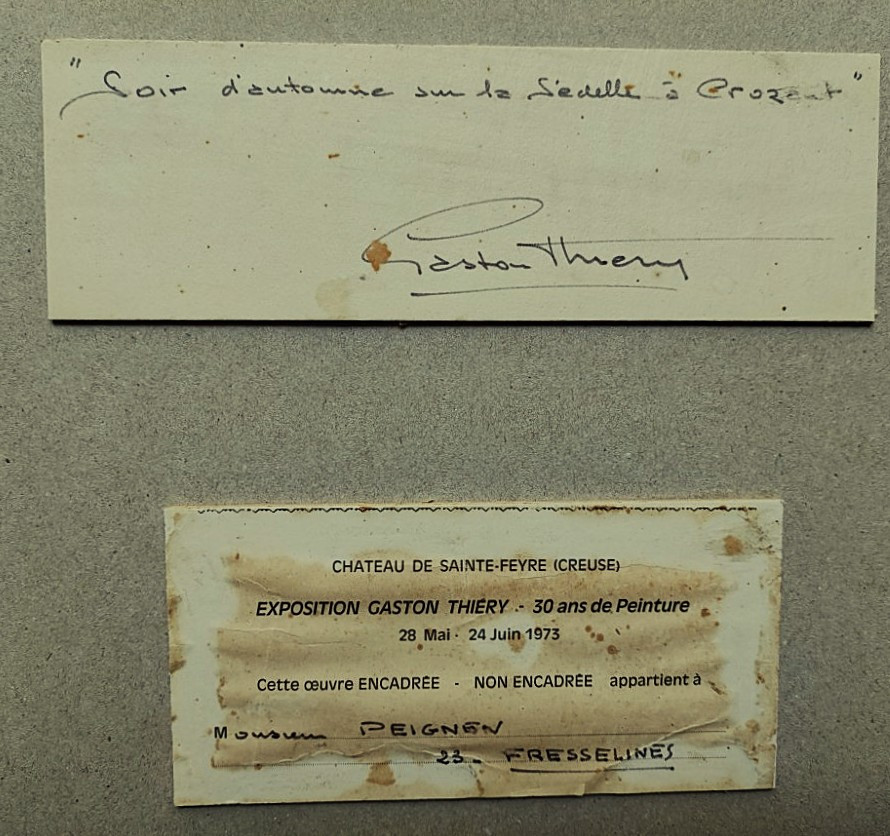 " Soir d'automne sur la Sédelle à Crozant "
Gaston Thiéry
CHATEAU DE SAINTE-FEYRE (CREUSE)
EXPOSITION GASTON THIÉRY - 30 ans de Peinture
28 Mai - 24 Juin 1973
Cette œuvre ENCADRÉE - NON ENCADRÉE appartient à
Monsieur PEIGNEN
23 - FRESSELINES